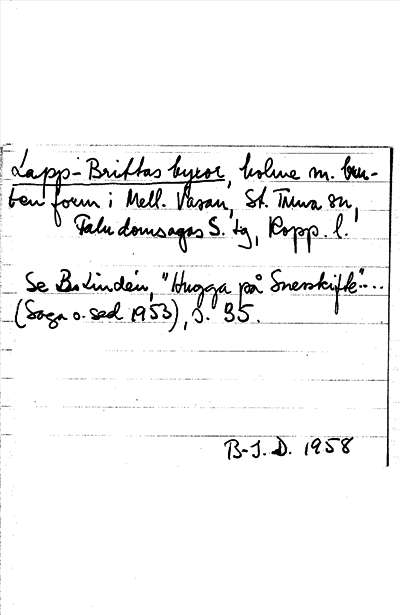 Lapp-Brittas byxor, holme m. bux-
ben form i Mell. Väsan, St. Tuna sn,
Falu domsagas S. tg, Kopp. l.
Se B. Lindén, "Hugga på Snesskifte"...
(Saga o. sed 1953), s. 35.
B-I. D. 1958